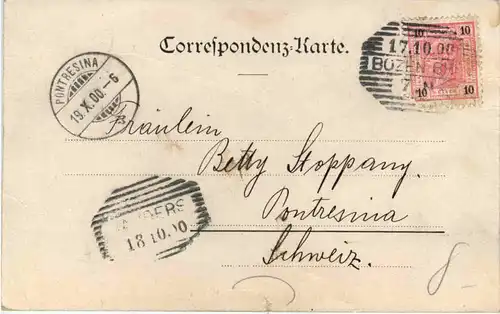 Correspondenz-Karte.
10 10
17.10.00
BOZEN
10 10
PONTRESINA
19.X.00.-6
Fräulein
Betty Stoppany.
Pontresina
Schweiz.
18.10.00
8-